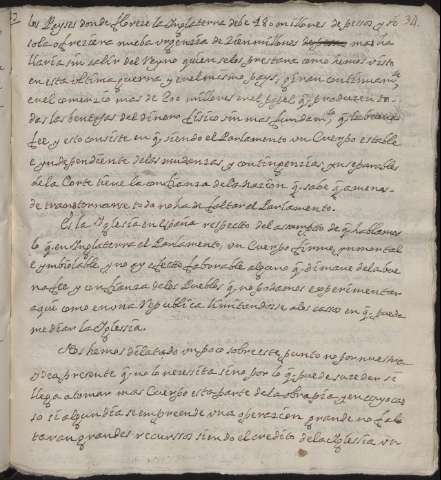 los Reyses donde florese la Inglaterra debe 180 millones de pessos y si 34.
sola ofreziera nueba urgenzia de zien millones de mas ha
llaria sin salir del Reyno quien se los prestara como hemos visto
en esta ultima guerra, y en el mismo pays, giran continuam.te
en el comerzio mas de 200 millones en el papel q. produzen to-
das las bentajas del dinero fisico sin mas fundam.to q. la buena
fee, y esto consiste en q. siendo el Parlamento un Cuerpo estable
e yndependiente de las mudanzas, y contingenzias ynseparables
de la Corte tiene la confianza de la Nazion q. sabe q. a menos
de transtornarse todo no ha de faltar el Parlamento.
Es la Yglesia en España respecto del assumpto de q. hablamos
lo q. en Ynglaterra el Parlamento, un Cuerpo firme, ynmortal
e ymbiolable, y no ay efecto faborable alguno q. dimane de la bue
na fee, y confianza de los Pueblos q. no podamos experimentar
aqui como en una Republica limitandose a los casos en q. pueda
mediar la Yglesia.
Nos hemos dilatado un poco sobre este punto no por nuestra
ydea presente q. no lo nezesita sino por lo q. puede suzeder si
llega a tomar mas Cuerpo esta parte de la
so si algun dia se emprende una operazion grande no fal-
taran grandes recurssos siendo el credito de la Yglesia un